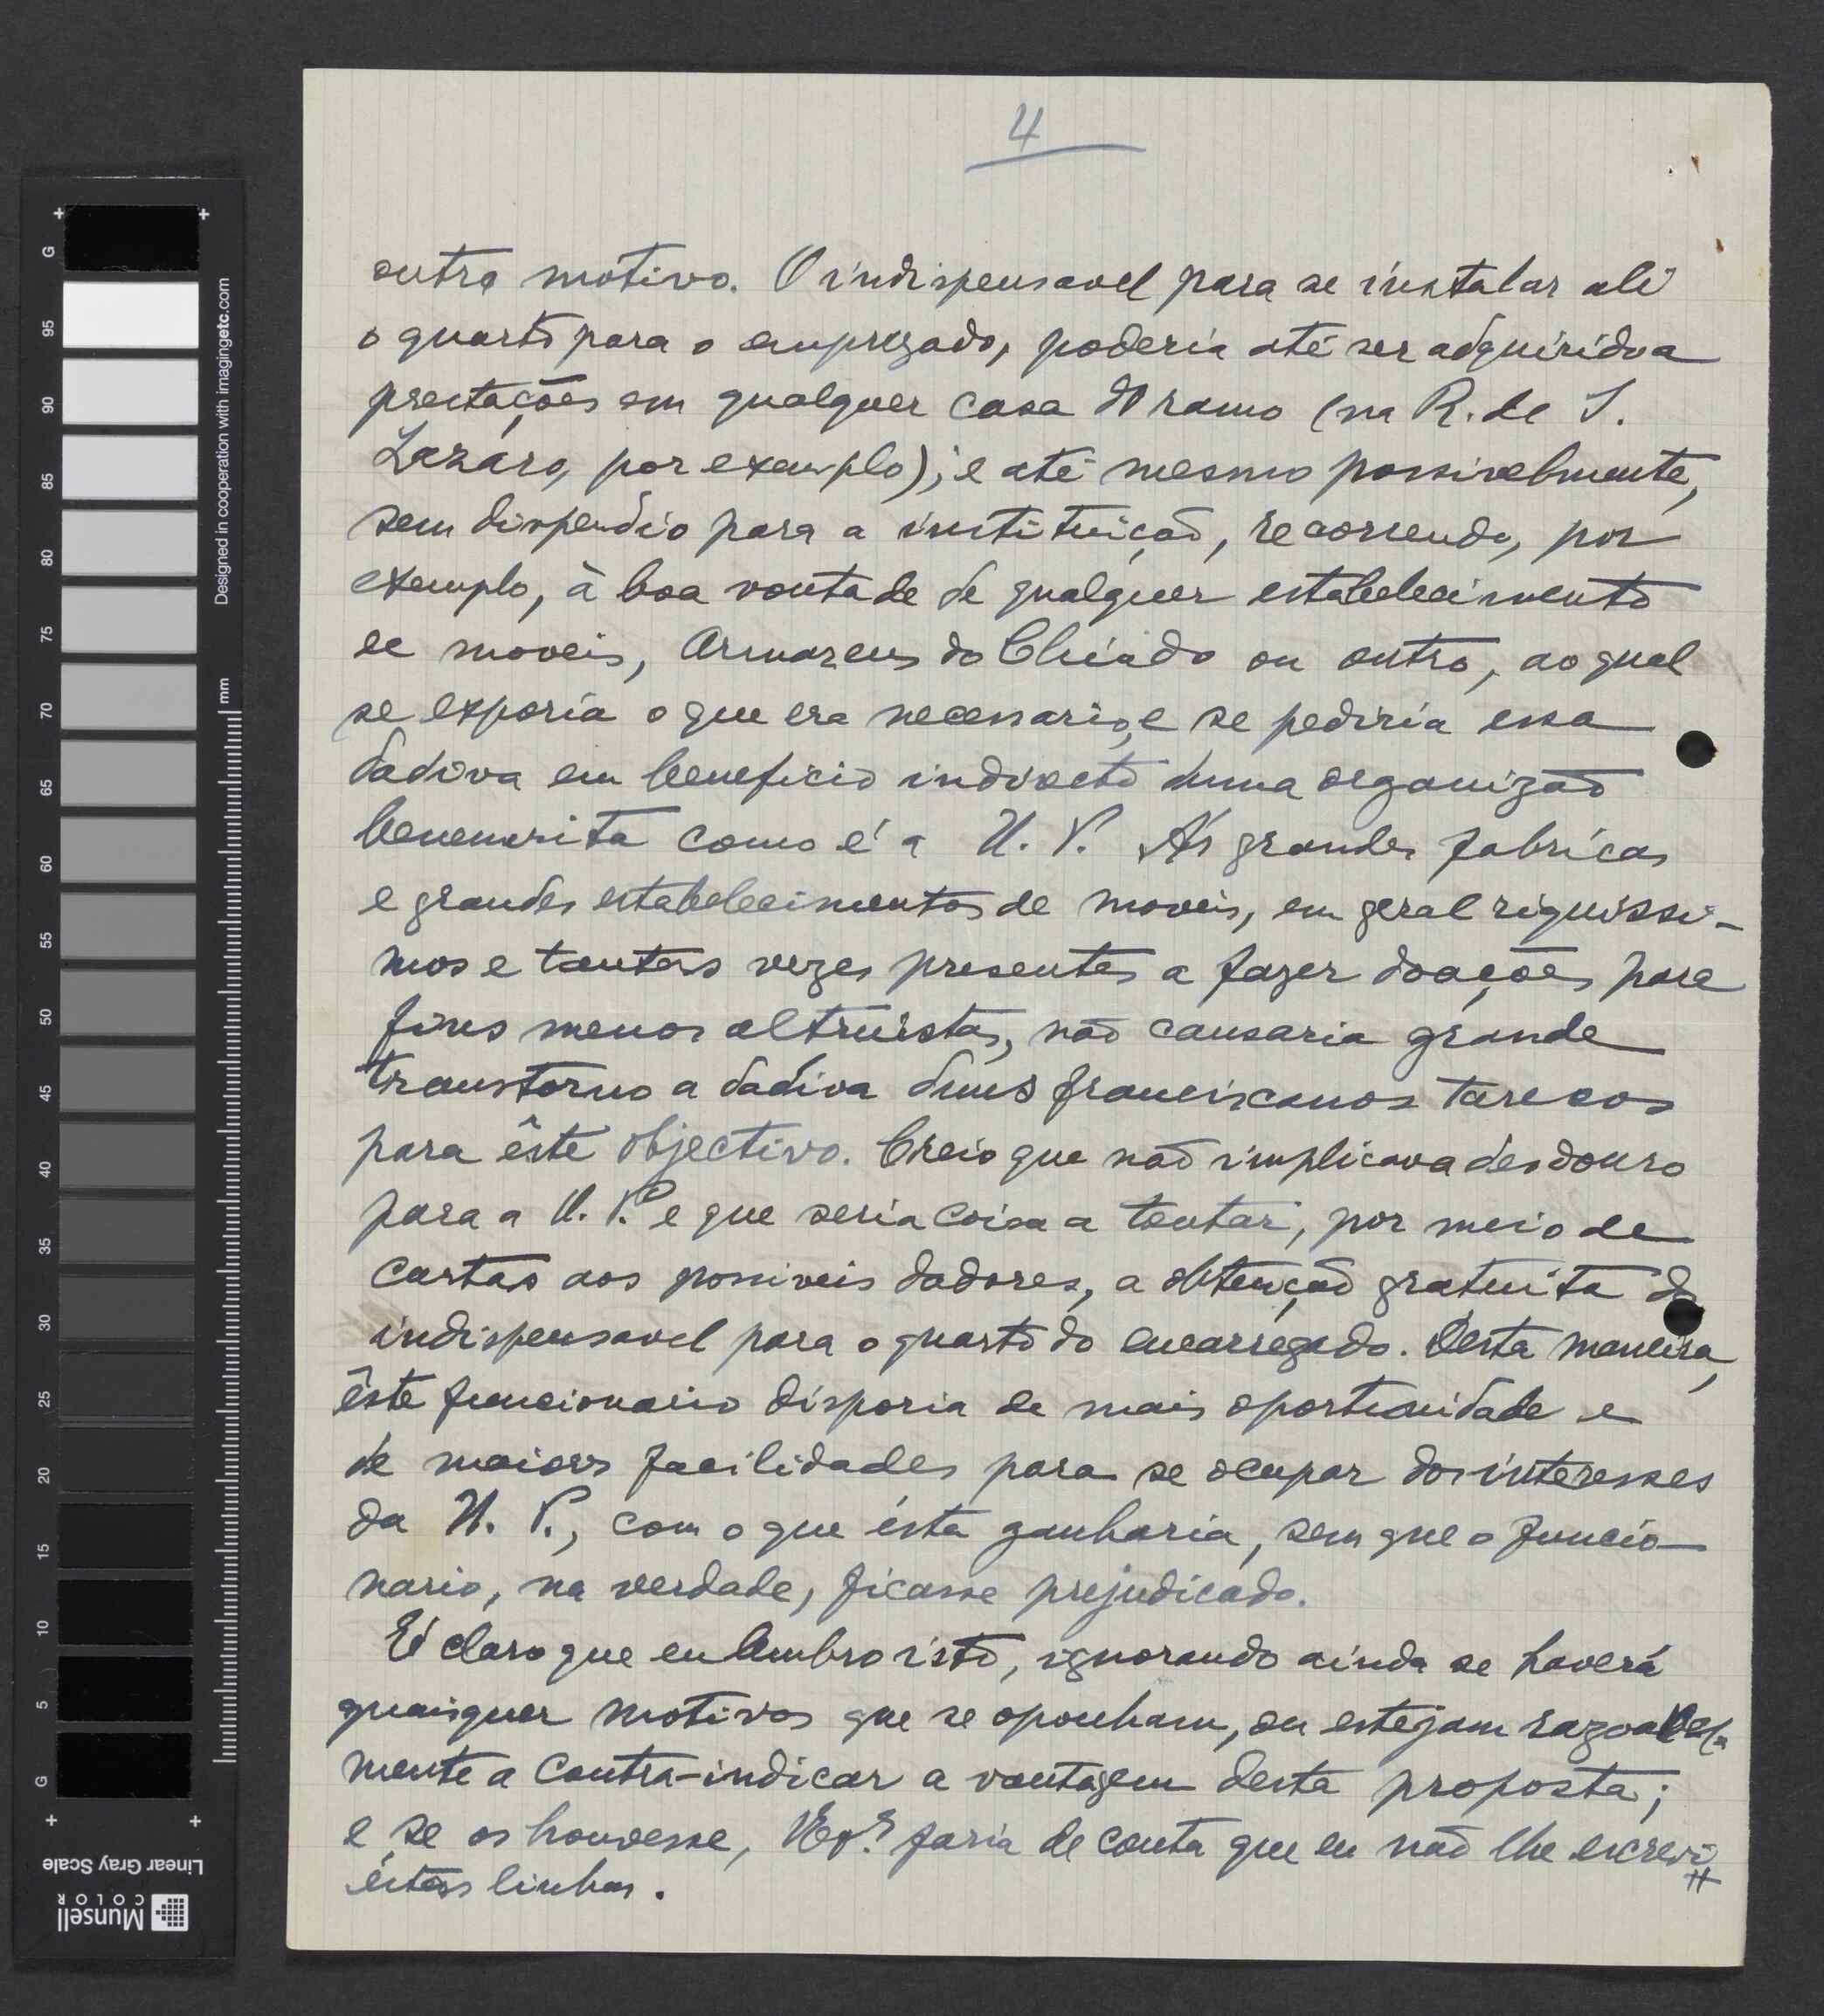 4
outro motivo. O indispensavel para se instalar ali
o quarto para o empregado, poderia até ser adquirido a
prestações em qualquer casa do ramo (na R. de S.
Lazáro, por exemplo); e até mesmo possivelmente,
sem dispendio para a instituição, recorrendo, por
exemplo, à boa vontade de qualquer estabelecimento
de moveis, Armazens do Chiado ou outro, ao qual
se exporia o que era necessario, e se pediria essa
dadiva em beneficio indirecto duma organizão
benemerita como é a U. P. Ás grandes fabricas
e grandes estabelecimentos de moveis, em geral riquissi-
mos e tantas vezes presentes a fazer doações para
fins menos altruistas, não causaria grande
transtorno a dadiva duns franciscanos tarecos
para êste objectivo. Creio que não implicava desdouro
para a U. P. e que seria coisa a tentar, por meio de
cartas aos possiveis dadores, a obtenção gratuita do
indispensavel para o quarto do encarregado. Desta maneira,
êste funcionario disporia de mais oportunidade e
de maiores facilidades para se ocupar dos interesses
da U. P., com o que ésta ganharia, sem que o funcio-
nario, na verdade, ficasse prejudicado.
É claro que eu lembro isto, ignorando ainda se haverá
quaisquer motivos que se oponham, ou estejam razoavel-
mente a contra-indicar a vantagem desta proposta;
e se os houvesse, V Exª. faria de conta que eu não lhe escrevi
éstas linhas.
Designed in cooperation with imagingetc.com
mm
G
95
90
85
80
75
70
65
60
55
50
45
40
35
30
25
20
15
10
5
G
Linear Gray Scale
Munsell
COLOR